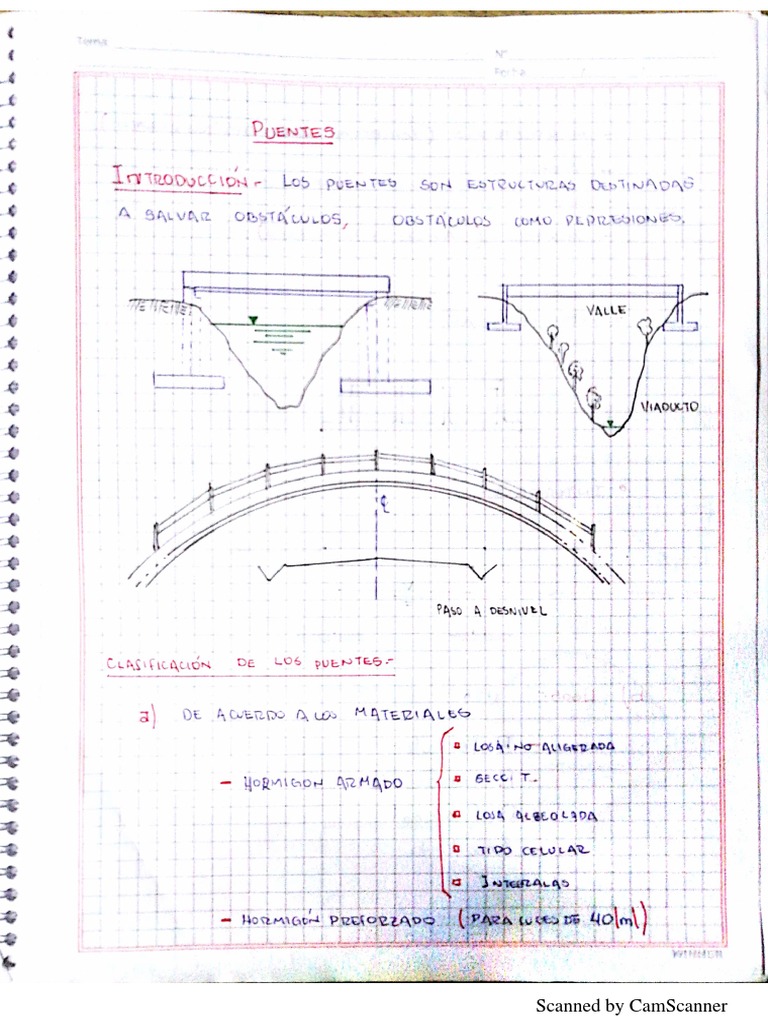 Tema:
N°
Fecha
PUENTES
INTRODUCCIÓN.- LOS PUENTES SON ESTRUCTURAS DESTINADAS
A SALVAR OBSTÁCULOS, OBSTÁCULOS COMO DEPRESIONES.
VALLE
VIADUCTO
℄
PASO A DESNIVEL
CLASIFICACIÓN DE LOS PUENTES.-
a) DE ACUERDO A LOS MATERIALES
LOSA NO ALIGERADA
- HORMIGON ARMADO
SECC. T.
LOSA ALBEOLADA
TIPO CELULAR
INTEGRALAS
- HORMIGÓN PREFORZADO (PARA LUCES DE 40|m|)
WINNER
Scanned by CamScanner